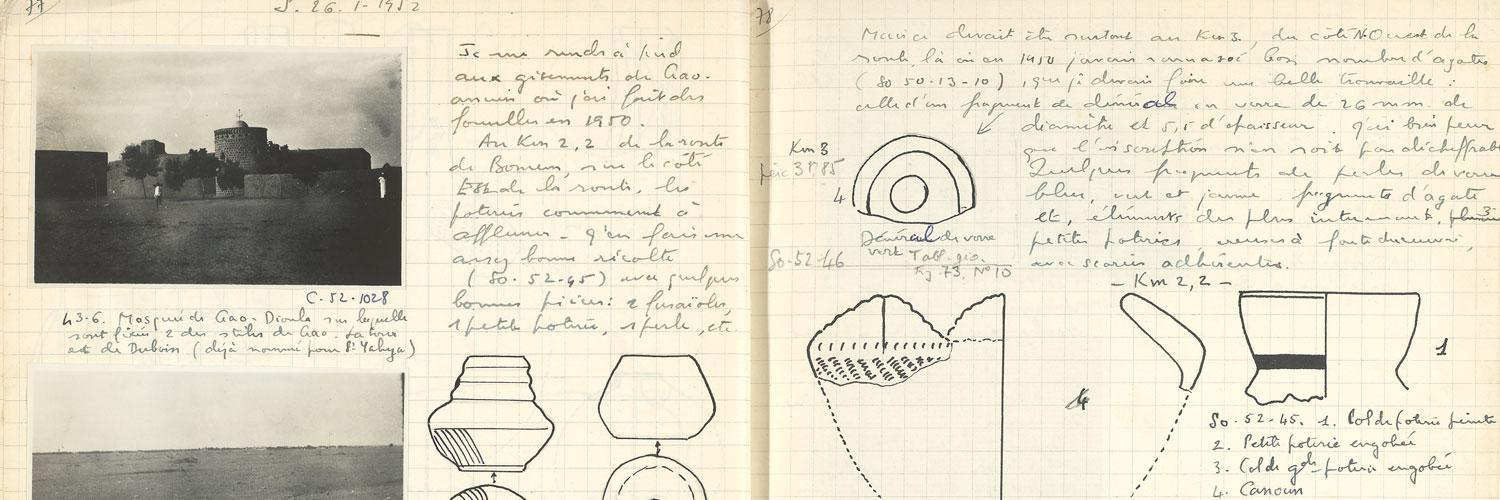 77
S. 26.1-1952
Je me rends à pied
aux gisements de Gao-
ancien où j'ai fait des
fouilles en 1950.
Au Km 2,2 de la route
de Bourem, sur le côté
Est de la route, les
poteries commencent à
affleurer. J'en fais une
assez bonne récolte
(So. 52-45) avec quelques
bonnes pièces: 2 fusaïoles,
1 petite poterie, 1 perle, etc.
C-52-1028
43-6. Mosquée de Gao. Dioula sur laquelle
sont fixées 2 des stèles de Gao. La tour
est de Dubois (déjà nommé pour Yahya)
78
Mais ce devait être surtout au Km 3, du côté N.Ouest de la
route, là où en 1950 j'avais ramassé bon nombre d'agates
(So 50-13-10), que je devais faire une belle trouvaille:
celle d'un fragment de dénéral en verre de 26 mm. de
diamètre et 5,5 d'épaisseur. J'ai bien peur
que l'inscription n'en soit pas déchiffrable
Quelques fragments de perles de verre
bleu, vert et jaune, fragments d'agate
et, éléments des plus intéressants, 3
petites poteries, creusets à fonte de cuivre,
avec scories adhérentes.
Km 3
3P.85
4
Dénéral de verre
vert Tabl. gio.
fig. 73, N° 10
So-52-46
- Km 2,2 -
4
1
So-52-45. 1. Col de poterie peinte
2. Petite poterie engobée
3. Col de gde poterie engobée
4. Canoun